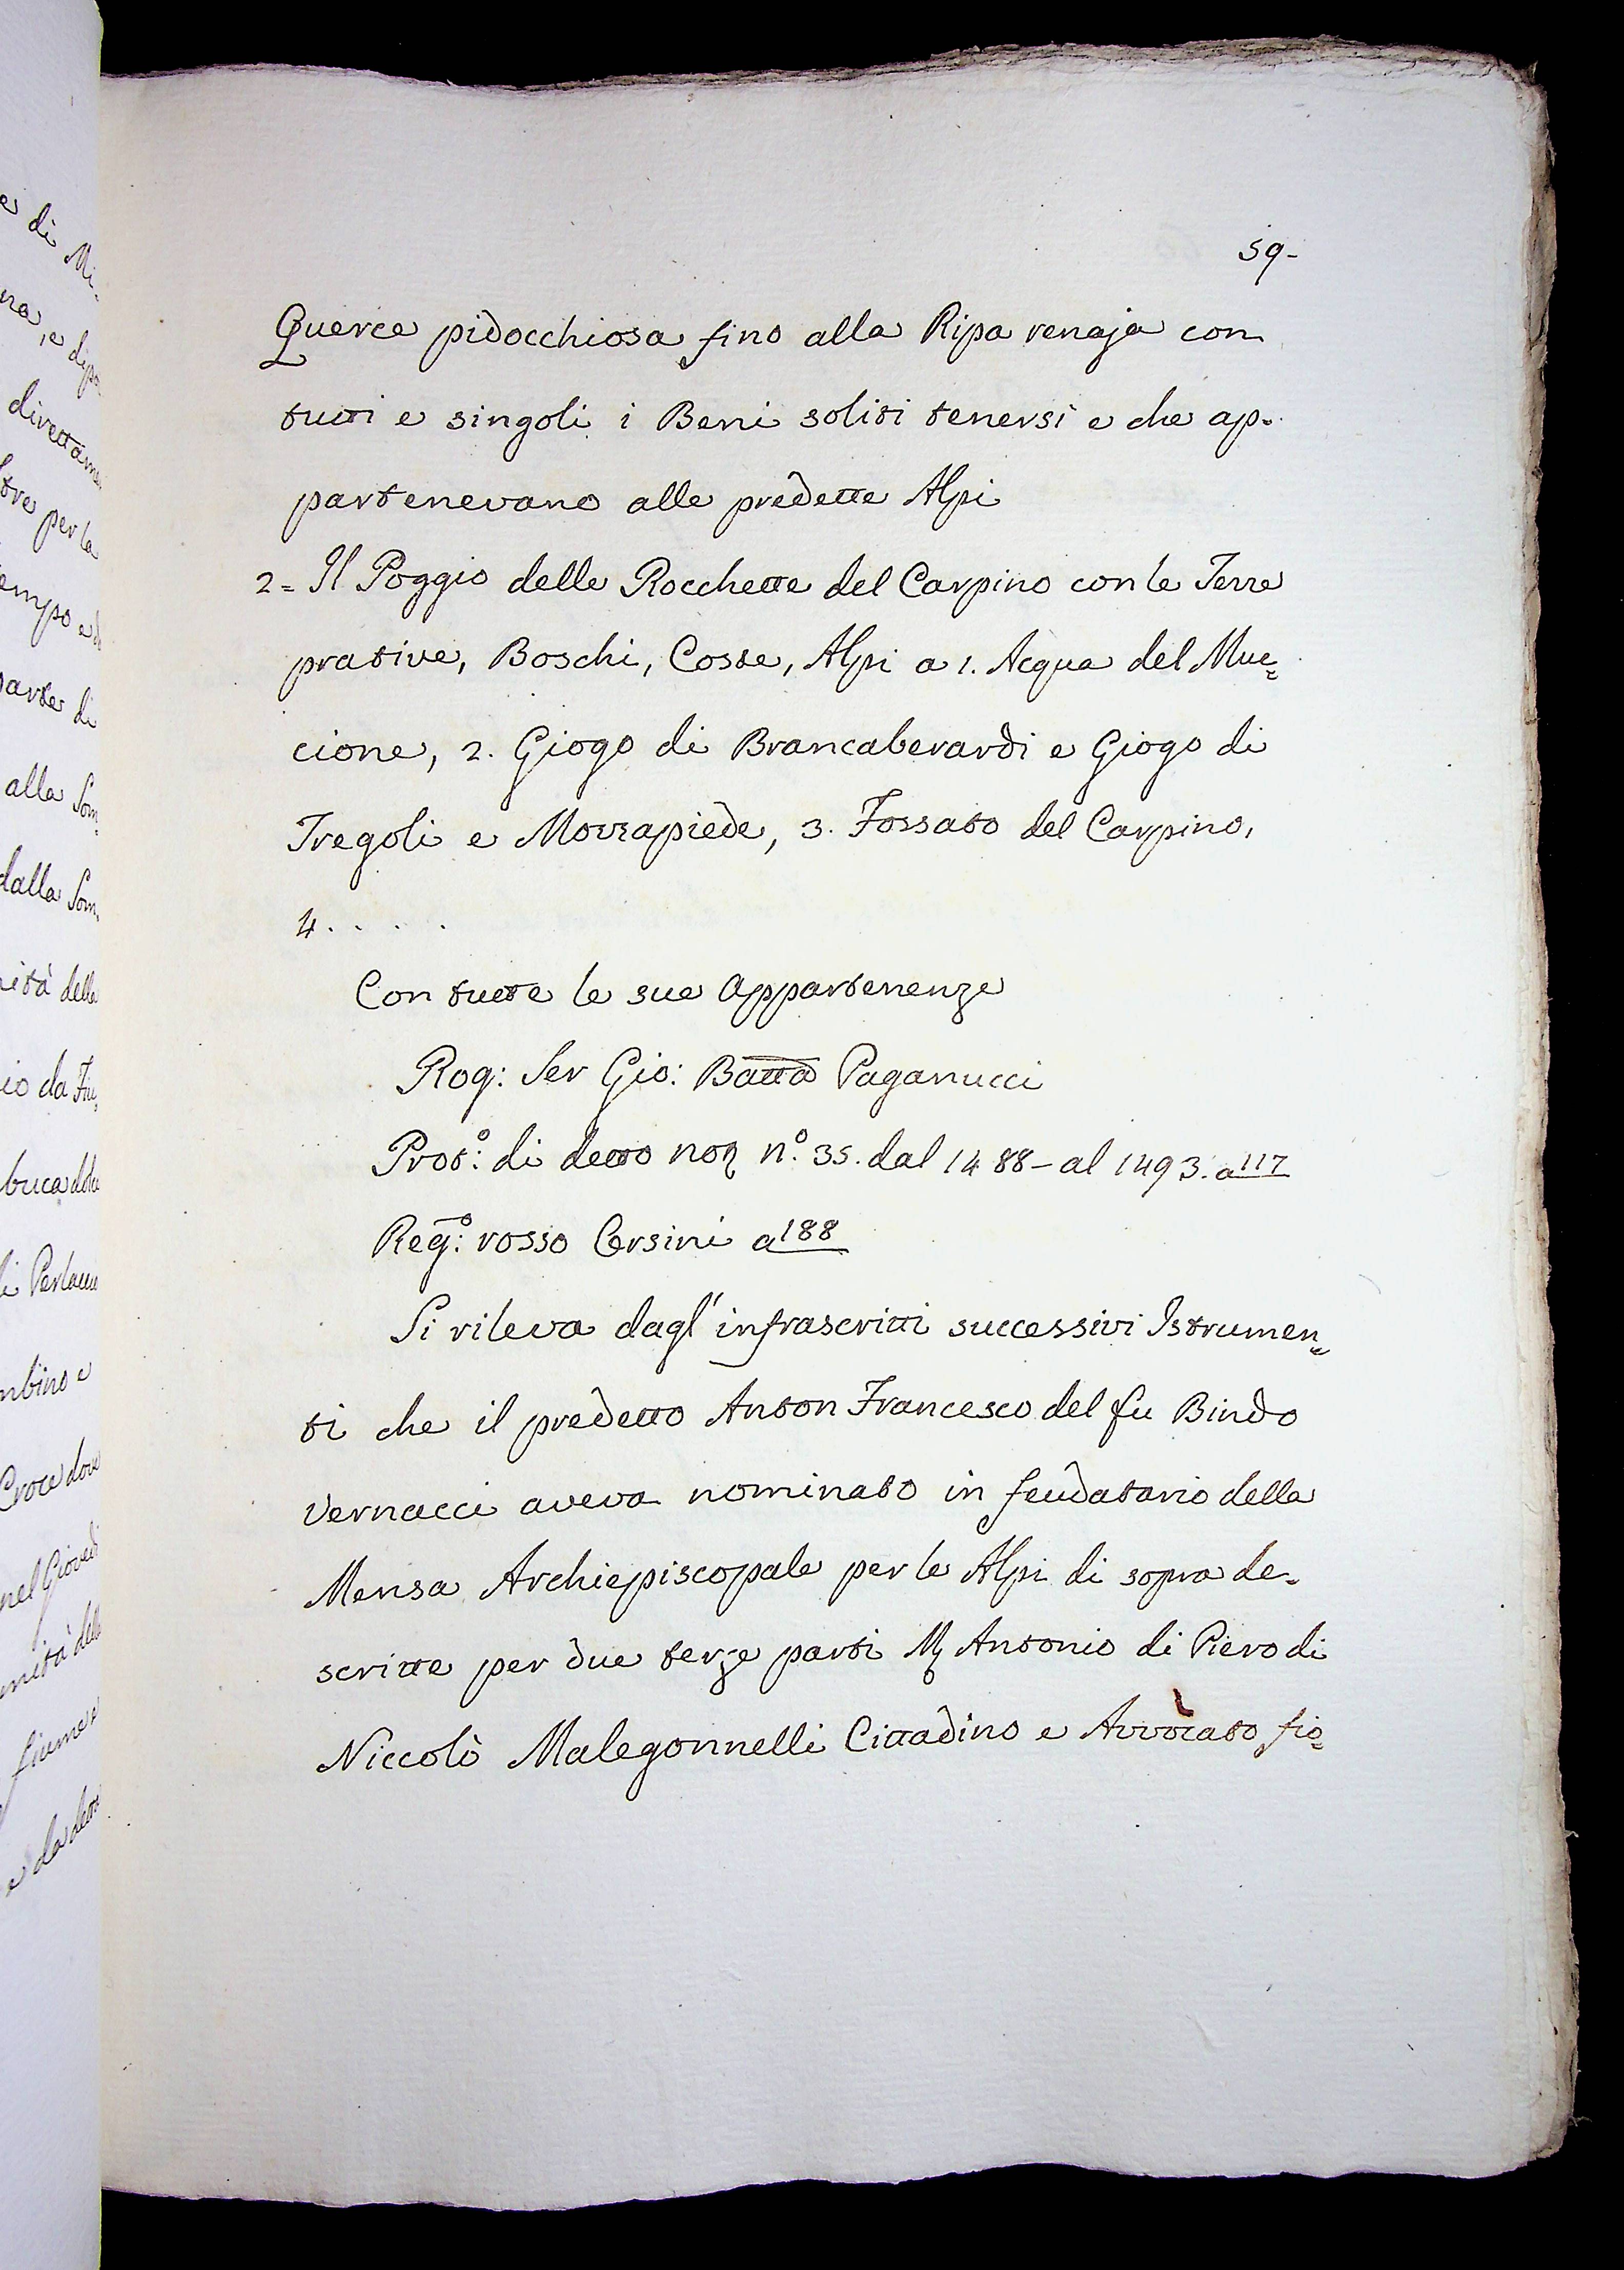 59-
Querce pidocchiosa fino alla Ripa renaja con
tutti e singoli i Beni soliti tenersi e che ap-
partenevano alle predette Alpi
2= Il Poggio delle Rocchette del Carpino con le Terre
prative, Boschi, Coste, Alpi a 1. Acqua del Muc=
cione, 2. Giogo di Brancaberardi e Giogo di
Tregoli e Mozzapiede, 3. Fossato del Carpino,
4. . . . .
Con tutte le sue Appartenenze
Rog: Ser Gio: Batta Paganucci
Prot:º di detto not nº. 35. dal 1488- al 1493. a 117
Reg:º rosso Corsini a 188
Si rileva dagl' infrascritti successivi Istrumen=
ti che il predetto Anton Francesco del fu Bindo
Vernacci aveva nominato in feudatario della
Mensa Archiepiscopale per le Alpi di sopra de-
scritte per due terze parti M Antonio di Piero di
Niccolò Malegonnelli Cittadino e Avvocato fio=
di Mi-
na, e
per la
parte di
alla Som-
dalla Som-
della
io da Fiu=
buca
di
Croce dove
nel Giovedì
fiume